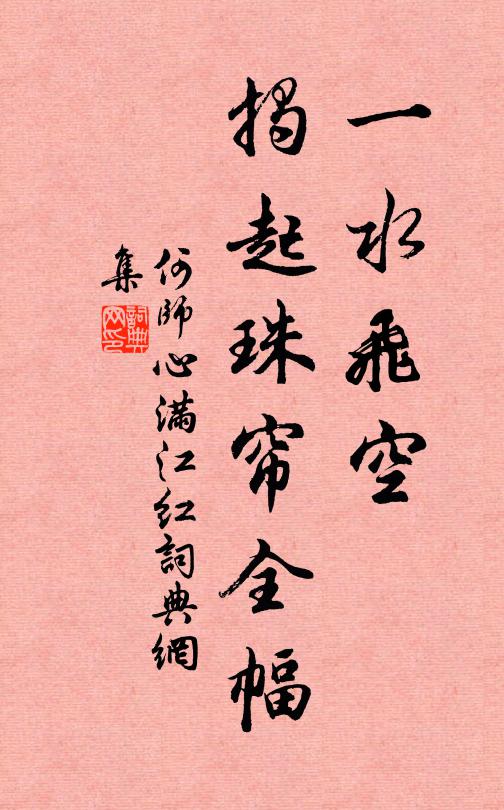 一水飛空
揭起珠帘全幅
何師心满江红詞典網
集
詞典
网印